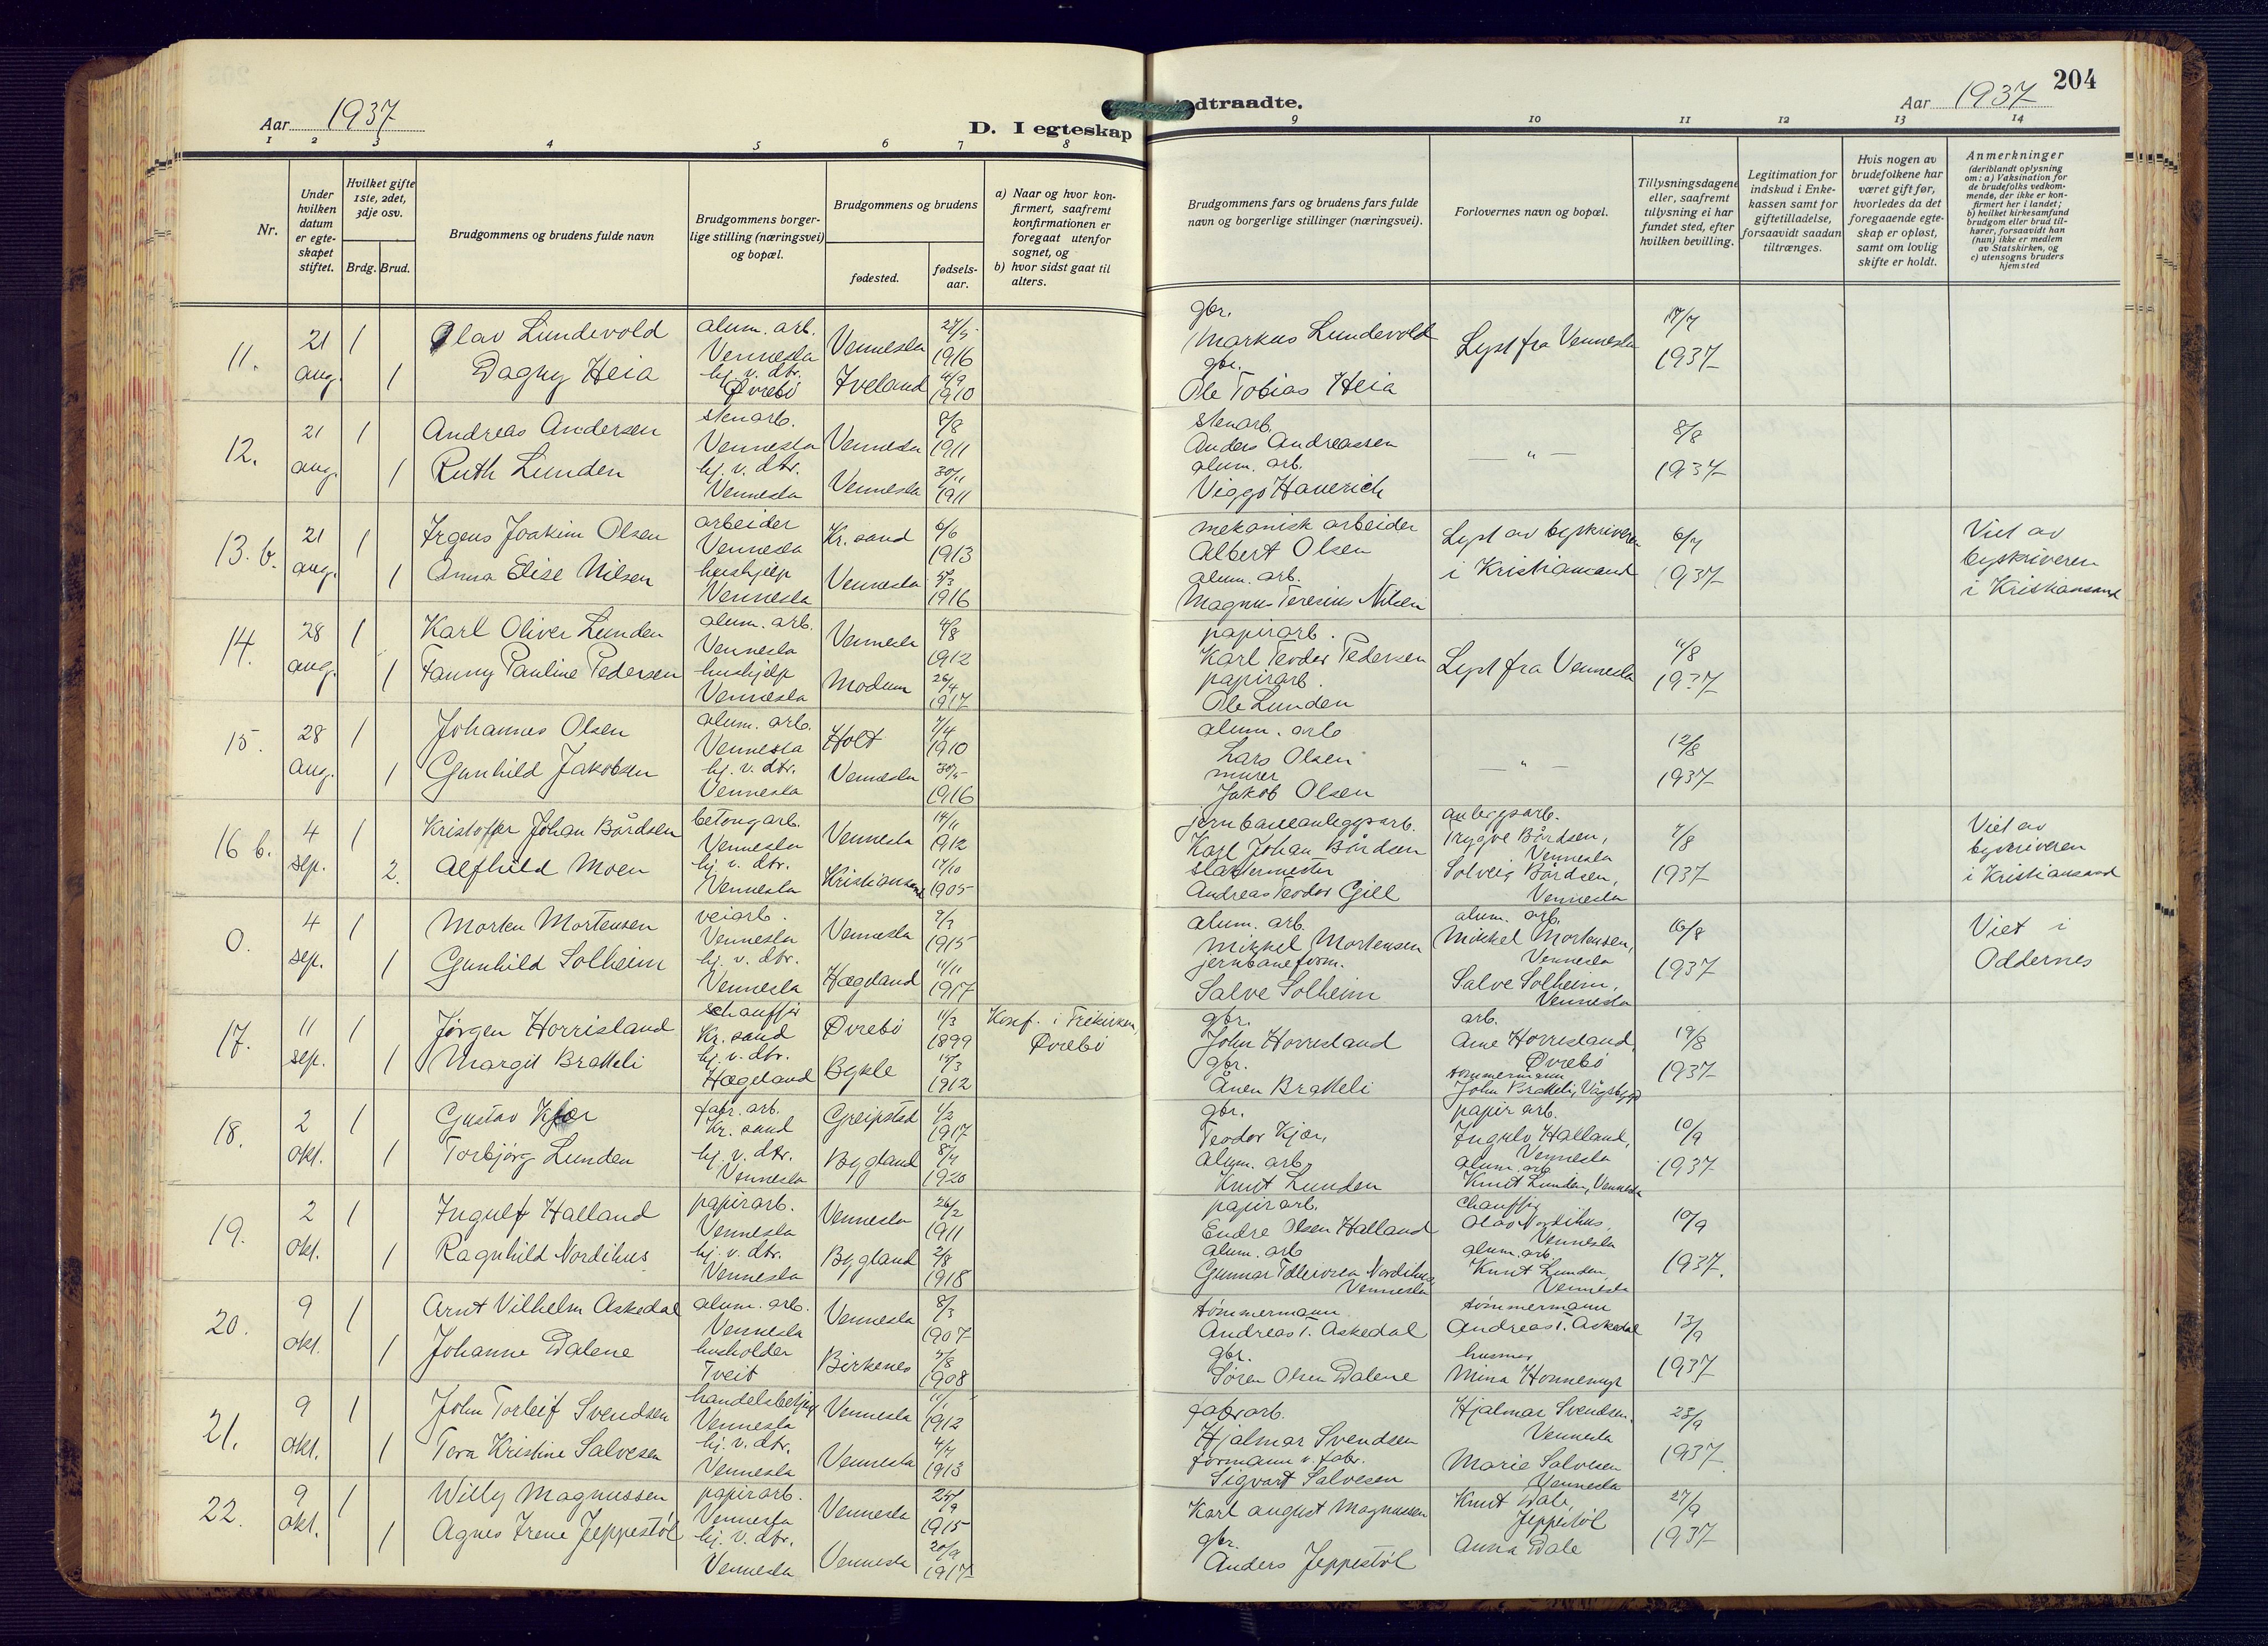 Aar 1937
D. I egteskap
1 2 3 4 5 6 7 8
Nr.
Under hvilken datum er egteskapet stiftet.
Hvilket gifte 1ste, 2det, 3dje osv.
Brdg. Brud.
Brudgommens og brudens fulde navn
Brudgommens borgerlige stilling (næringsvei) og bopæl.
Brudgommens og brudens
fødested.
fødselsaar.
a) Naar og hvor konfirmert, saafremt konfirmationen er foregaat utenfor sognet, og
b) hvor sidst gaat til alters.
ndtraadte.
Aar 1937
204
9 10 11 12 13 14
Brudgommens fars og brudens fars fulde navn og borgerlige stillinger (næringsvei).
Forlovernes navn og bopæl.
Tillysningsdagene eller, saafremt tillysning ei har fundet sted, efter hvilken bevilling.
Legitimation for indskud i Enkekassen samt for giftetilladelse, forsaavidt saadan tiltrænges.
Hvis nogen av brudefolkene har været gift før, hvorledes da det foregaaende egteskap er opløst, samt om lovlig skifte er holdt.
Anmerkninger
(deriblandt oplysning om: a) Vaksination for de brudefolks vedkommende, der ikke er konfirmert her i landet;
b) hvilket kirkesamfund brudgom eller brud tilhører, forsaavidt han (hun) ikke er medlem av Statskirken, og
c) utensogns bruders hjemsted
11. 21 aug. 1 Olav Lundevold alum. arb. Vennesla Vennesla 1916
1 Dagny Heia hj. v. dtr. Øvrebö Iveland 1910
gbr. Markus Lundevold
gbr. Ole Tobias Heia
Lyst fra Vennesla 17/7 1937
12. 21 aug. 1 Andreas Andersen stenarb. Vennesla Vennesla 8/8 1911
1 Ruth Lunden hj. v. dtr. Vennesla Vennesla 30/11 1911
stenarb. Anders Andreassen
alum. arb. Viggo Hauerich
— " — 8/8 1937
13. b. 21 aug. 1 Irgens Joakim Olsen arbeider Vennesla Kr. sand 6/6 1913
1 Anna Elise Nilsen hushjelp Vennesla Vennesla 1916
mekanisk arbeider Albert Olsen
alum. arb. Magnus Teresius Nilsen
Lyst av byskriveren i Kristiansand 6/7 1937
Viet av byskriveren i Kristiansand
14. 28 aug. 1 Karl Oliver Lunden alum. arb. Vennesla Vennesla 1912
1 Fanny Pauline Pedersen hushjelp Vennesla Modum 26/4 1917
papirarb. Karl Teodor Pedersen
papirarb. Ole Lunden
Lyst fra Vennesla 11/8 1937
15. 28 aug. 1 Johannes Olsen alum. arb. Vennesla Holt 7/4 1910
1 Gunhild Jakobsen hj. v. dtr. Vennesla Vennesla 30/5 1916
alum. arb Lars Olsen
murer Jakob Olsen
— " — 12/8 1937
16 b. 4 sep. 1 Kristoffer Johan Bårdsen betongarb. Vennesla Vennesla 14/11 1912
2. Alfhild Moen hj. v. dtr. Vennesla Kristiansand 17/10 1905
jernbaneanleggsarb. Karl Johan Bårdsen
slaktermester Andreas Teodor Gill
anleggsarb. Trygve Bårdsen, Vennesla
Solveig Bårdsen, Vennesla
7/8 1937
Viet av byskriveren i Kristiansand
0. 4 sep. 1 Morten Mortensen veiarb. Vennesla Vennesla 1915
1 Gunhild Solheim hj. v. dtr. Vennesla Hægeland 11/11 1917
alum. arb. Mikkel Mortensen
jernbaneform. Salve Solheim
alum. arb. Mikkel Mortensen, Vennesla
Salve Solheim, Vennesla
16/8 1937
Viet i Oddernes
17. 11 sep. 1 Jørgen Horrisland schauffør Kr. sand Øvrebö 11/3 1899
Konf. i Frikirken, Øvrebö
1 Margit Bratteli hj. v. dtr. Hægeland Bykle 15/3 1912
gbr. John Horrisland
gbr. Ånen Bratteli
arb. Arne Horrisland, Øvrebö
tømmermann John Bratteli, Vågsbygd
19/8 1937
18. 2 okt. 1 Gustav Kjær fabr. arb. Kr. sand Greipstad 1/2 1917
1 Torbjörg Lunden hj. v. dtr. Vennesla Bygland 8/7 1920
gbr. Teodor Kjær,
alum. arb. Knut Lunden
papir arb. Ingulv Halland, Vennesla
alum. arb Knut Lunden, Vennesla
10/9 1937
19. 2 okt. 1 Ingulf Halland papirarb. Vennesla Vennesla 26/2 1911
1 Ragnhild Nordihus hj. v. dtr. Vennesla Bygland 2/8 1918
papirarb. Endre Olsen Halland
alum. arb Gunnar Nordihus, Vennesla
chauffør Olav Nordihus, Vennesla
alum. arb. Knut Lunden, Vennesla
10/9 1937.
20. 9 okt. 1 Arnt Vilhelm Askedal alum. arb. Vennesla Vennesla 8/3 1907
1 Johanne Dalene husholder Tveit Birkenes 1908
tømmermann Andreas T. Askedal
gbr. Sören Olsen Dalene
tömmermann Andreas T. Askedal
husmor Mina Honnemyr
13/9 1937
21. 9 okt. 1 John Torleif Svendsen handelsbetjent Vennesla Vennesla 11/1 1912
1 Tora Kristine Salvesen hj. v. dtr. Vennesla Vennesla 4/7 1913
fabrarb. Hjalmar Svendsen
formann v. fabr. Sigvart Salvesen
Hjalmar Svendsen, Vennesla
Marie Salvesen Vennesla
23/9 1937
22. 9 okt. 1 Willy Magnussen papirarb. Vennesla Vennesla 25/9 1915
1 Agnes Irene Jeppestøl hj. v. dtr. Vennesla Vennesla 20/9 1917
Karl August Magnussen
gbr. Anders Jeppestøl
Knut Dale, Jeppestøl
Anna Dale
27/9 1937